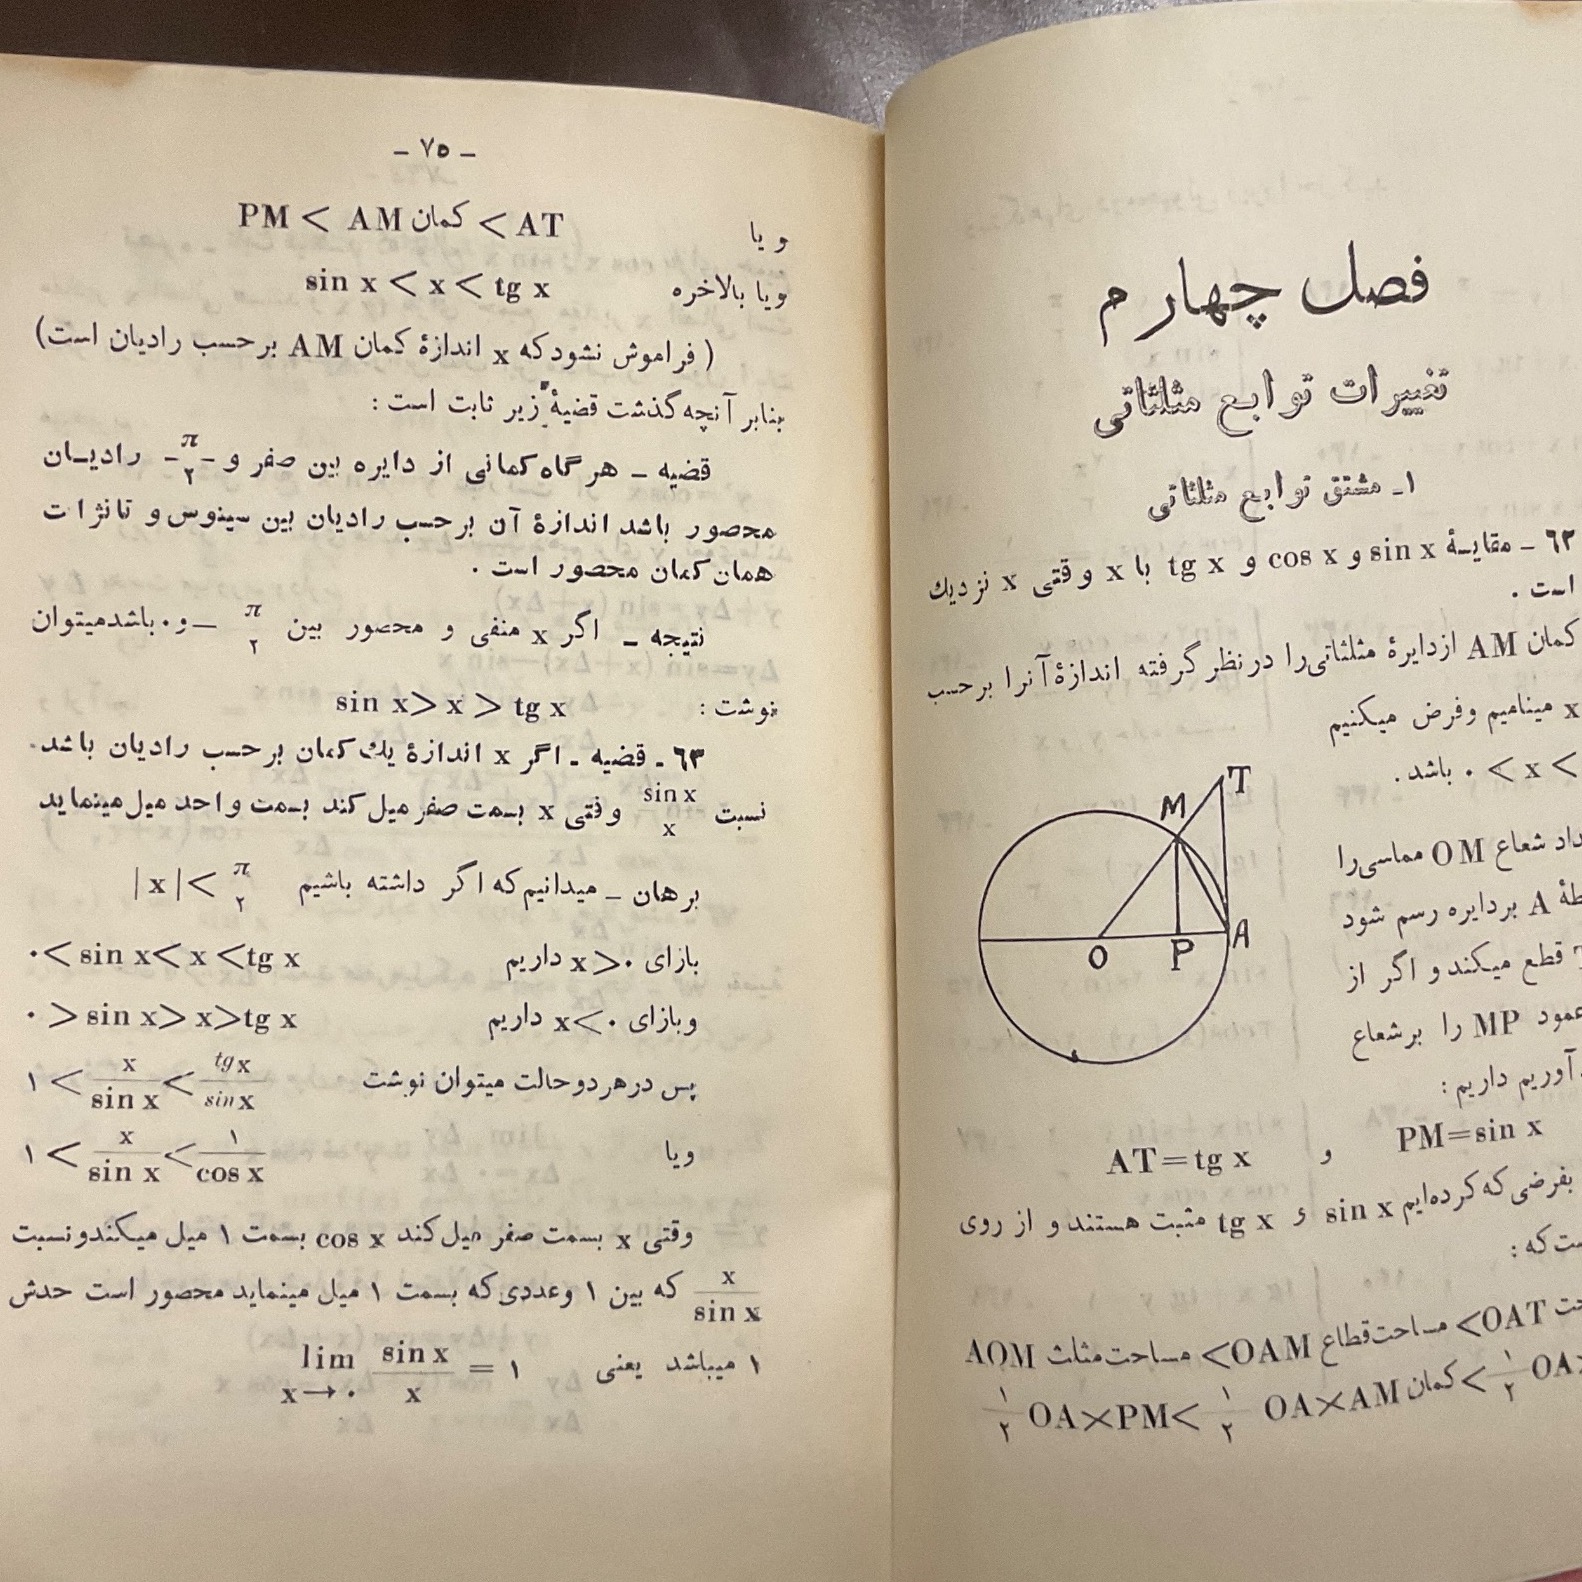 فصل چهارم
تغییرات توابع مثلثاتی
۱ـ مشتق توابع مثلثاتی
۶۲ ـ مقایسهٔ sin x و cos x و tg x با x وقتی x نزدیك
است .
کمان AM ازدایرهٔ مثلثاتی‌را درنظر گرفته اندازهٔ آنرا برحسب
x مینامیم وفرض میکنیم
۰ < x < باشد .
شعاع OM مماسی‌را
A بردایره رسم شود
قطع میکند و اگر از
عمود MP را برشعاع
آوریم داریم :
T
M
O
P
A
PM=sin x و AT=tg x
بفرضی که کرده‌ایم sin x و tg x مثبت هستند و از روی
که :
OAT> مساحت‌قطاع OAM> مساحت مثلث AOM
۱/۲ OA×PM< ۱/۲ OA×AM کمان< ۱/۲ OA
ـ ۷۵ ـ
و یا PM < AM کمان < AT
ویا بالاخره sin x < x < tg x
( فراموش نشود که x اندازهٔ کمان AM برحسب رادیان است)
بنابر آنچه گذشت قضیهٔ زیر ثابت است :
قضیه ـ هرگاه کمانی از دایره بین صفر و π/۲ رادیـان
محصور باشد اندازهٔ آن برحسب رادیان بین سینوس و تانژانت
همان کمان محصور است .
نتیجه ـ اگر x منفی و محصور بین π/۲ – و۰ باشدمیتوان
نوشت : sin x> x > tg x
۶۳ـ قضیه ـ اگر x اندازهٔ یك کمان برحسب رادیان باشد
نسبت sin x/x وقتی x بسمت صفر میل کند بسمت واحد میل مینماید
برهان ـ میدانیم که اگر داشته باشیم |x|< π/۲
بازای x>۰ داریم ۰< sin x< x <tg x
وبازای x<۰ داریم ۰ > sin x> x>tg x
پس درهردوحالت میتوان نوشت ۱ < x/sin x < tg x/sin x
ویا ۱ < x/sin x < ۱/cos x
وقتی x بسمت صفر میل کند cos x بسمت ۱ میل میکندونسبت
x/sin x که بین ۱ وعددی که بسمت ۱ میل مینماید محصور است حدش
۱ میباشد یعنی lim x→۰ sin x/x = ۱